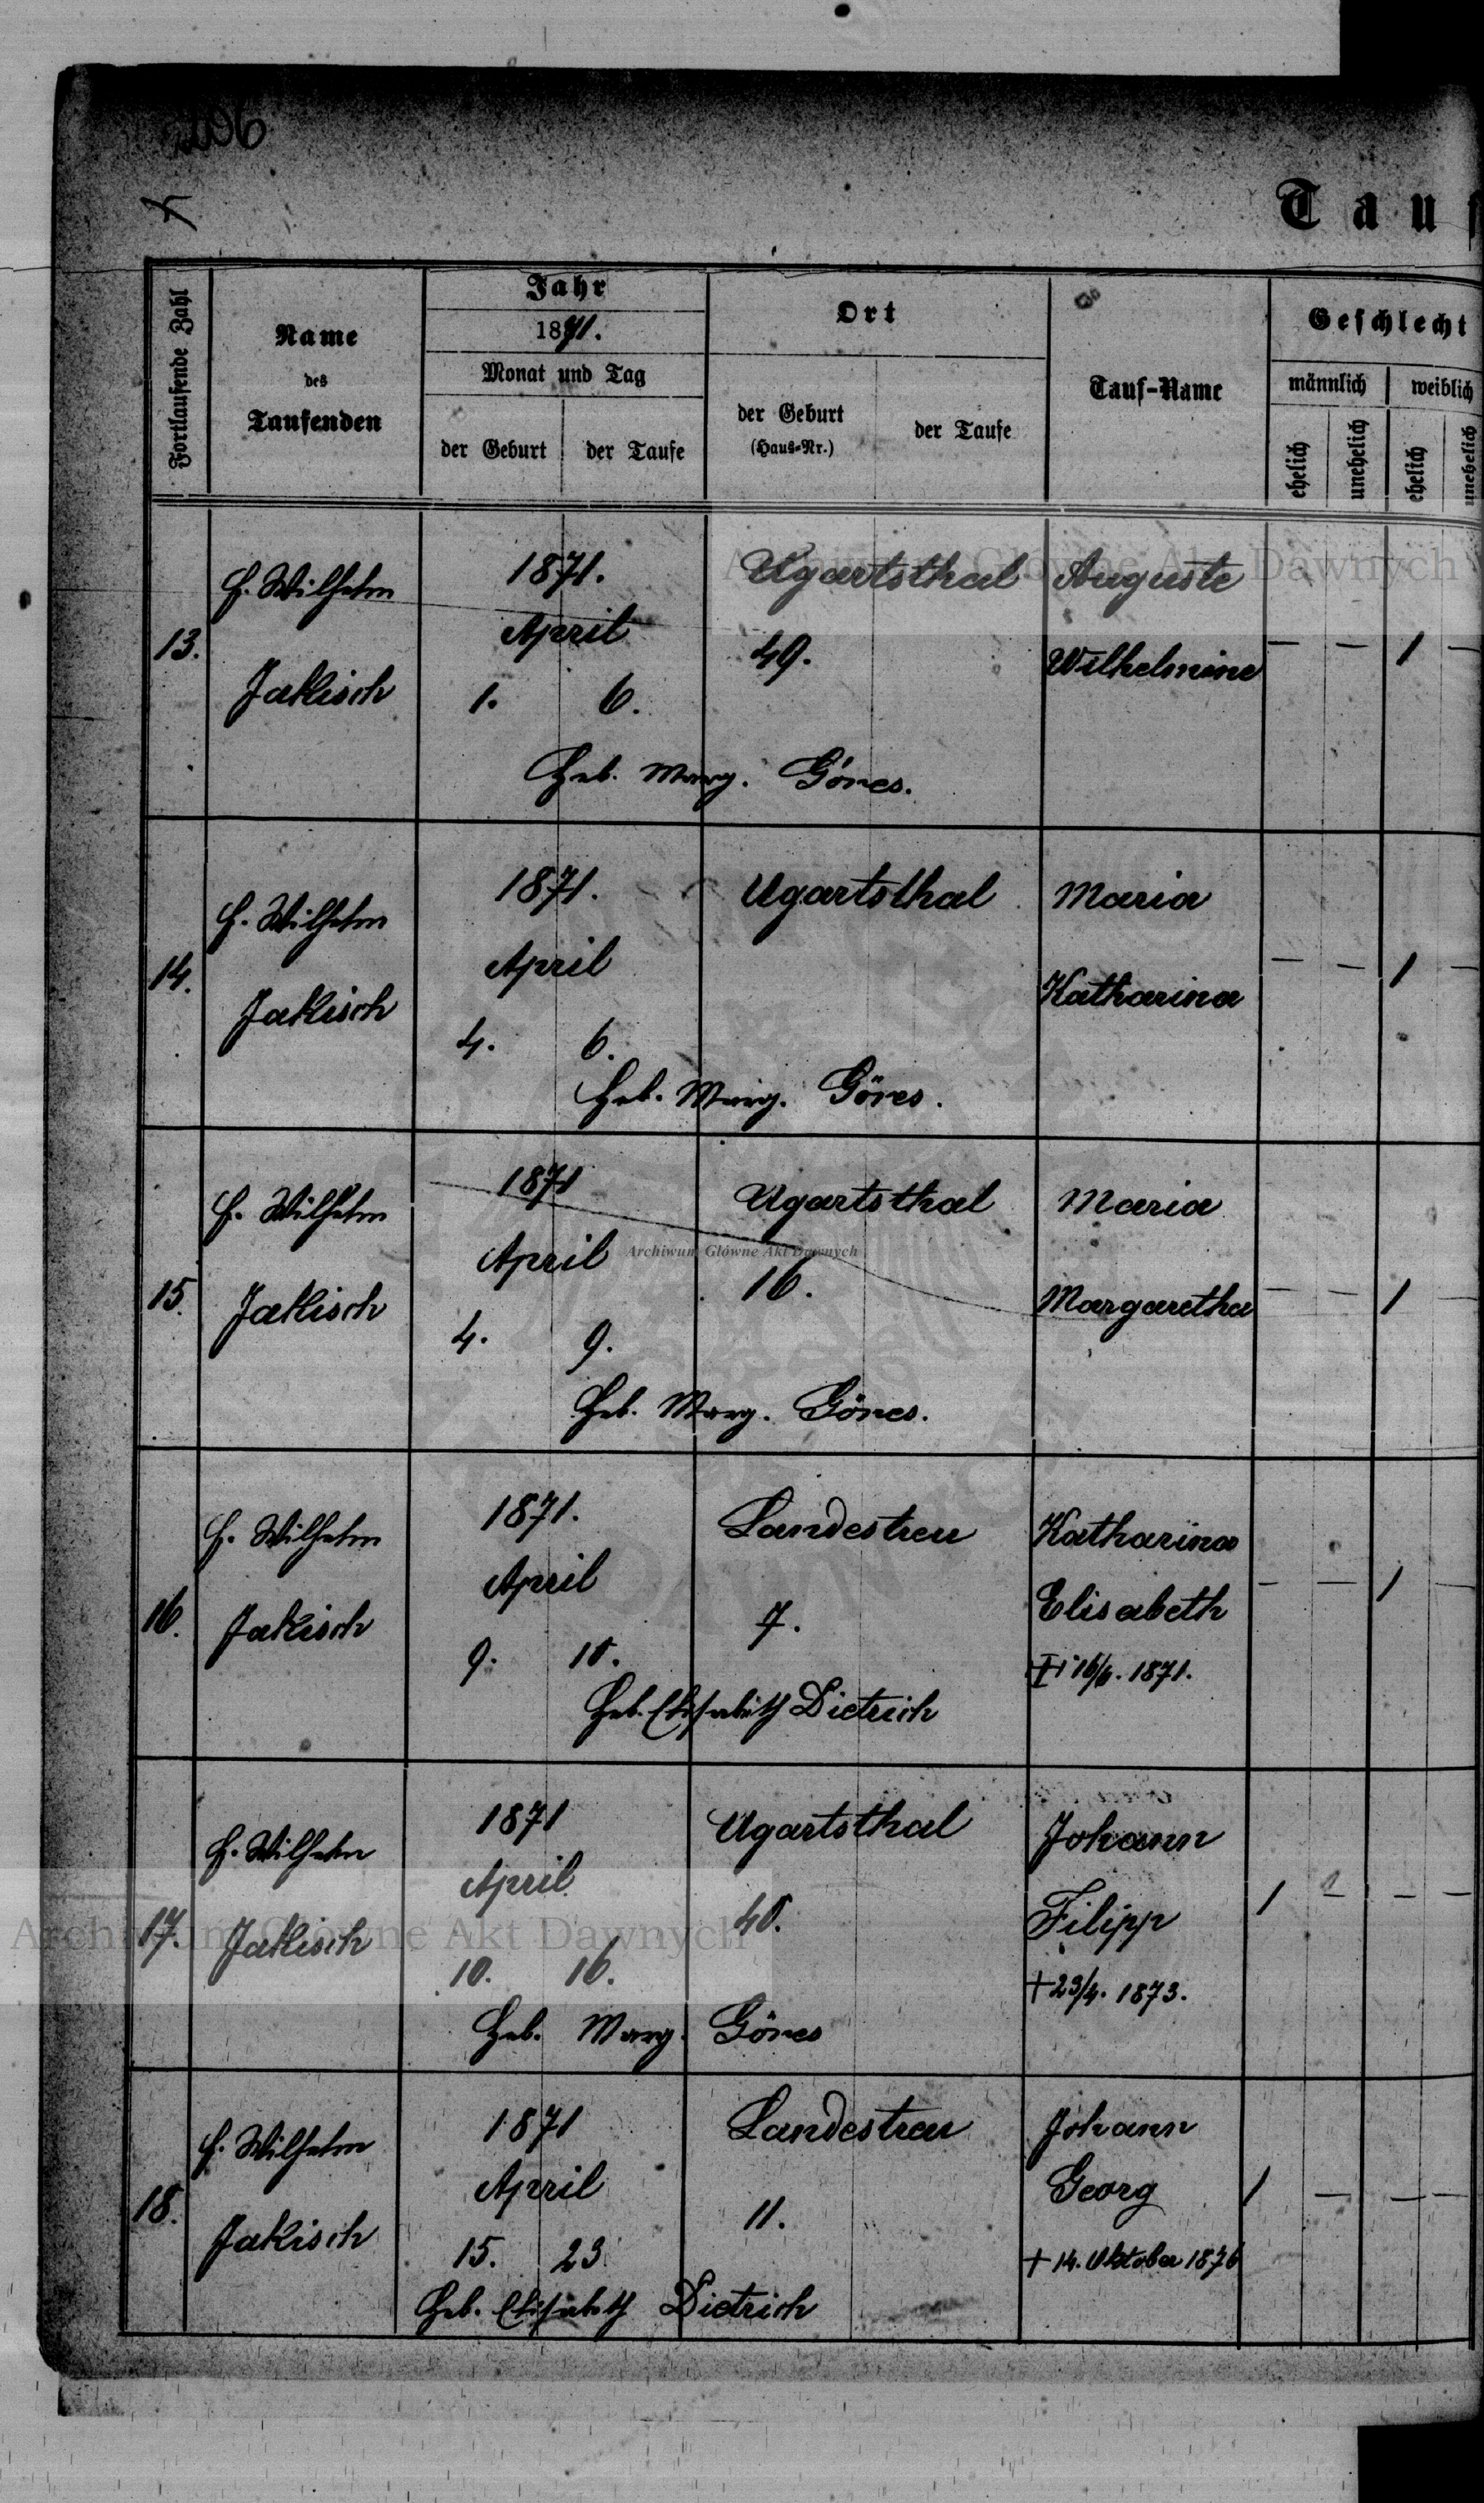 206
Tauf
Fortlaufende Zahl
Name
des
Taufenden
Jahr
1871.
Monat und Tag
der Geburt
der Taufe
Ort
der Geburt
(Haus-Nr.)
der Taufe
Tauf-Name
Geschlecht
männlich
weiblich
ehelich
unehelich
ehelich
unehelich
Archiwum Główne Akt Dawnych
13.
H. Wilhelm
Jakisch
1871.
April
1. 6.
Ugartsthal
49.
Auguste
Wilhelmine
— — 1 —
Heb. Marg. Göres.
14.
H. Wilhelm
Jakisch
1871.
April
4. 6.
Ugartsthal
Maria
Katharina
— — 1 —
Heb. Marg. Göres.
15.
H. Wilhelm
Jakisch
1871
April
4. 9.
Ugartsthal
Archiwum Główne Akt Dawnych
16.
Maria
Margaretha
— — 1 —
Heb. Marg. Göres.
16.
H. Wilhelm
Jakisch
1871.
April
9.
Landestreu
7.
Katharina
Elisabeth
1871.
— — 1 —
Heb. Elisabeth Dietrich
17.
H. Wilhelm
Jakisch
1871
April
10. 16.
Ugartsthal
Johann
Filipp
+ 23/4. 1873.
1 — — —
Archiwum Główne Akt Dawnych
Heb. Marg. Göres
18.
H. Wilhelm
Jakisch
1871
April
15. 23.
Landestreu
11.
Johann
Georg
+ 14. Oktober 1876
1 — — —
Heb. Elisabeth Dietrich